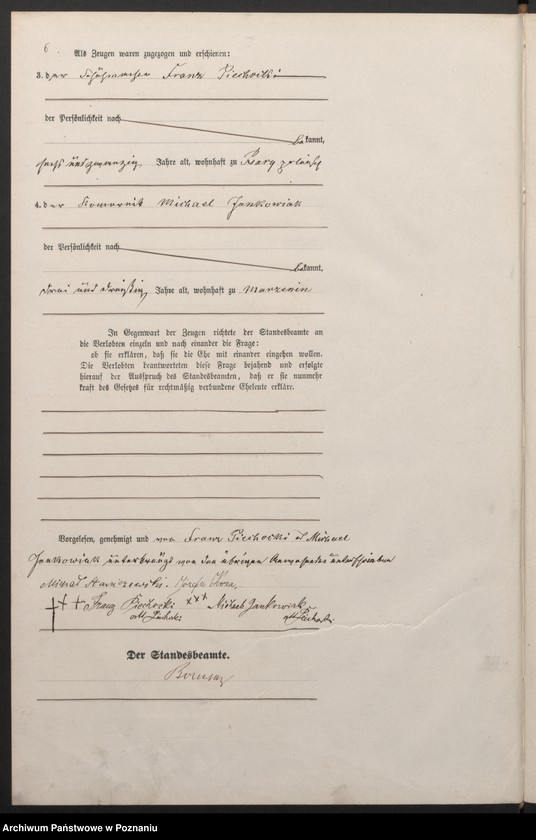 6
Als Zeugen waren zugezogen und erschienen:
3. der Franz Piechocki
der Persönlichkeit nach
bekannt,
sechs und zwanzig Jahre alt, wohnhaft zu
4. der Komornik Michael Jankowiak
der Persönlichkeit nach
bekannt,
drei und dreißig Jahre alt, wohnhaft zu Marzenin
In Gegenwart der Zeugen richtete der Standesbeamte an
die Verlobten einzeln und nach einander die Frage:
ob sie erklären, daß sie die Ehe mit einander eingehen wollen.
Die Verlobten beantworteten diese Frage bejahend und erfolgte
hierauf der Ausspruch des Standesbeamten, daß er sie nunmehr
kraft des Gesetzes für rechtmäßig verbundene Eheleute erkläre.
Vorgelesen, genehmigt und von Franz Piechocki u Michael
Jankowiak von den übrigen unterschrieben
Michał
+++ Franz Piechocki xxx Michael Jankowiak
Der Standesbeamte.
Archiwum Państwowe w Poznaniu